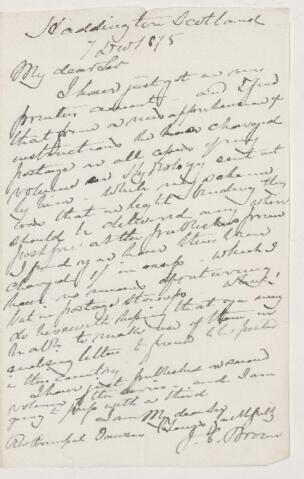 Haddington Scotland
7 Dec 1875
My dear Sir
I have just got in my
printers account and I find
that from a misapprehension of
instructions he has charged
postage on all copies of my
volume on Hydrology sent out
by him - While my
was that in
should be delivered any where
post free at the publishers price
I find you have thus been
charged in - which I
have no means of returning
but in postage stamps which I
do herewith hoping that you may
be able to make use of them in
letters to friends to be posted
in this country
I have just published a second
volume of the series and I am
going to press with a third
I am My dear Sir
Yours faithfully
J. C. Brown
Rev Principal Dawson